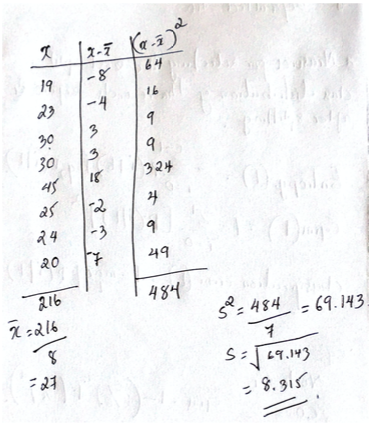 x x-x̄ (x-x̄)²
19 -8 64
23 -4 16
30 3 9
30 3 9
45 18 324
25 -2 4
24 -3 9
20 -7 49
216 484
x̄ = 216
8
= 27
S² = 484 = 69.143
7
S = √69.143
= 8.315